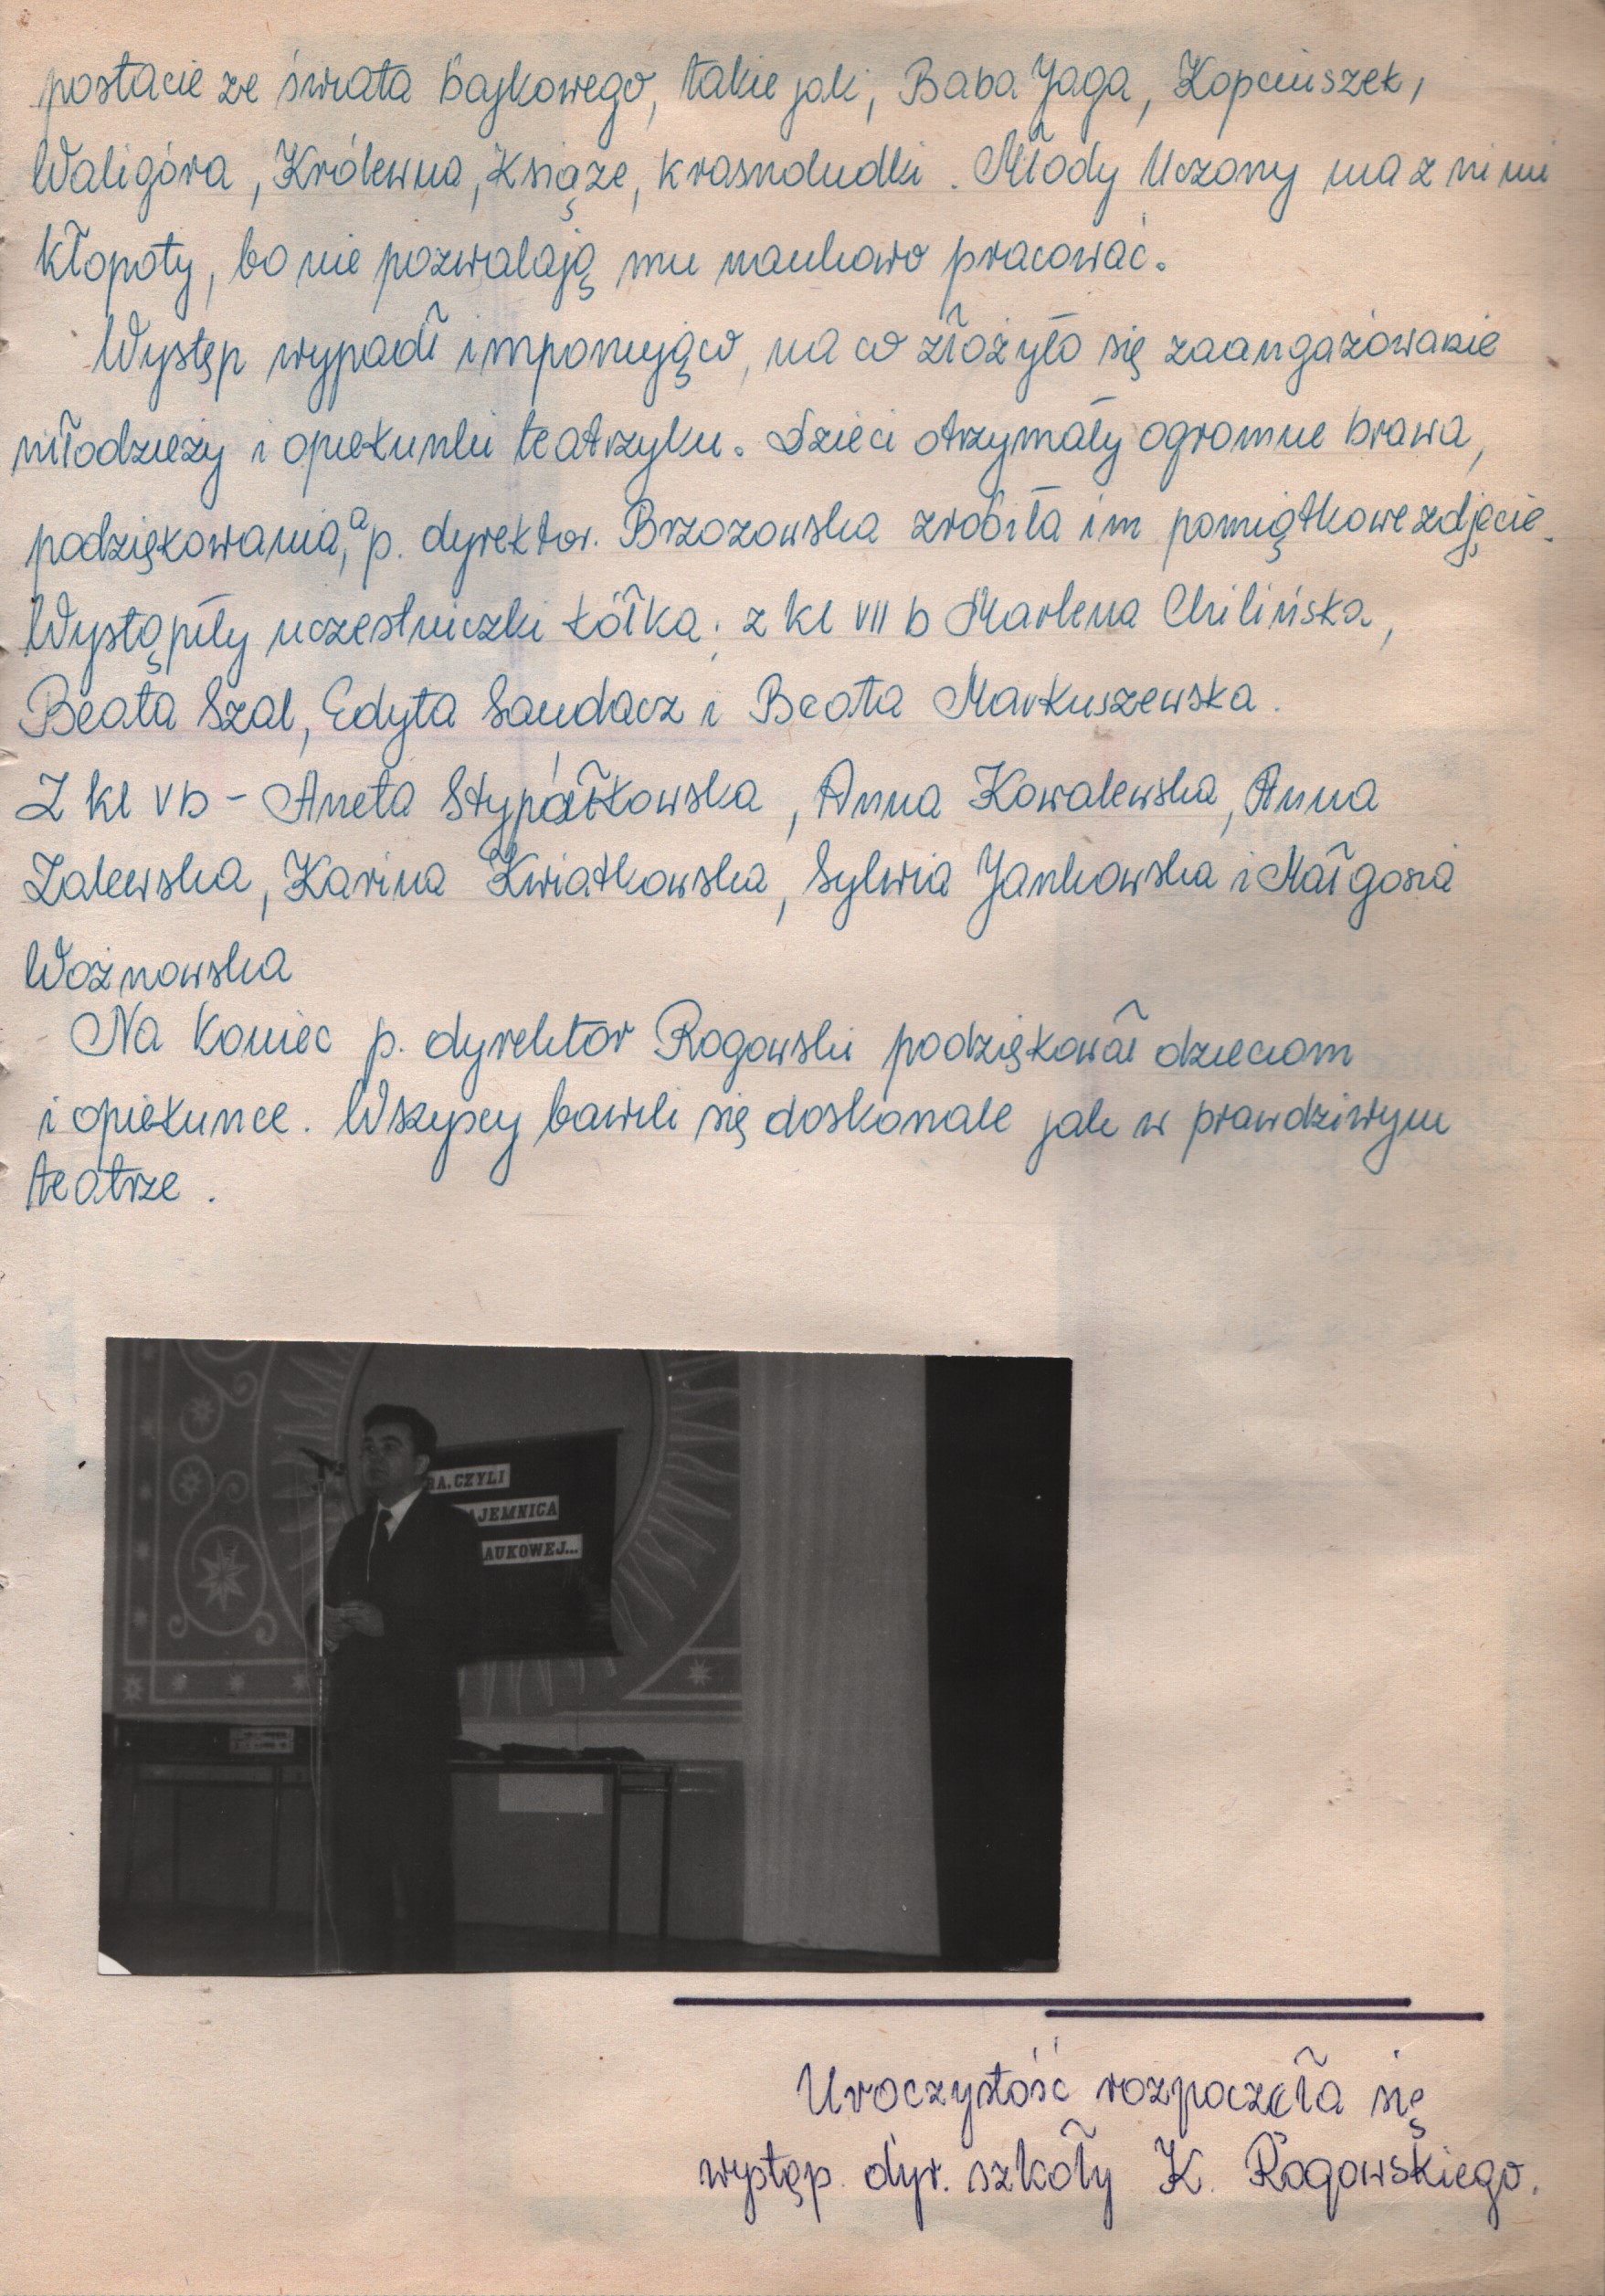 postacie ze świata bajkowego, takie jak, Baba Jaga, Kopciuszek,
Waligóra, Królewna, Książe, krasnoludki. Młody Uczony ma z nimi
kłopoty, bo nie pozwalają mu naukowo pracować.
Występ wypadł imponująco, na co złożyło się zaangażowanie
młodzieży i opiekunki teatrzyku. Dzieci otrzymały ogromne brawa,
podziękowania, a p. dyrektor. Brzozowska zrobiła im pamiątkowe zdjęcie.
Wystąpiły uczestniczki kółka: z kl VII b Marlena Chilińska,
Beata Szal, Edyta Sandacz i Beata Markuszewska.
Z kl V b - Aneta Stypałkowska, Anna Kowalewska, Anna
Zalewska, Karina Kwiatkowska, Sylwia Jankowska i Małgosia
Woźnowska
Na koniec p. dyrektor Rogowski podziękował dzieciom
i opiekunce. Wszyscy bawili się doskonale jak w prawdziwym
teatrze.
RA, CZYLI
AJEMNICA
AUKOWEJ...
Uroczystość rozpoczęła się
występ. dyr. szkoły K. Rogowskiego.